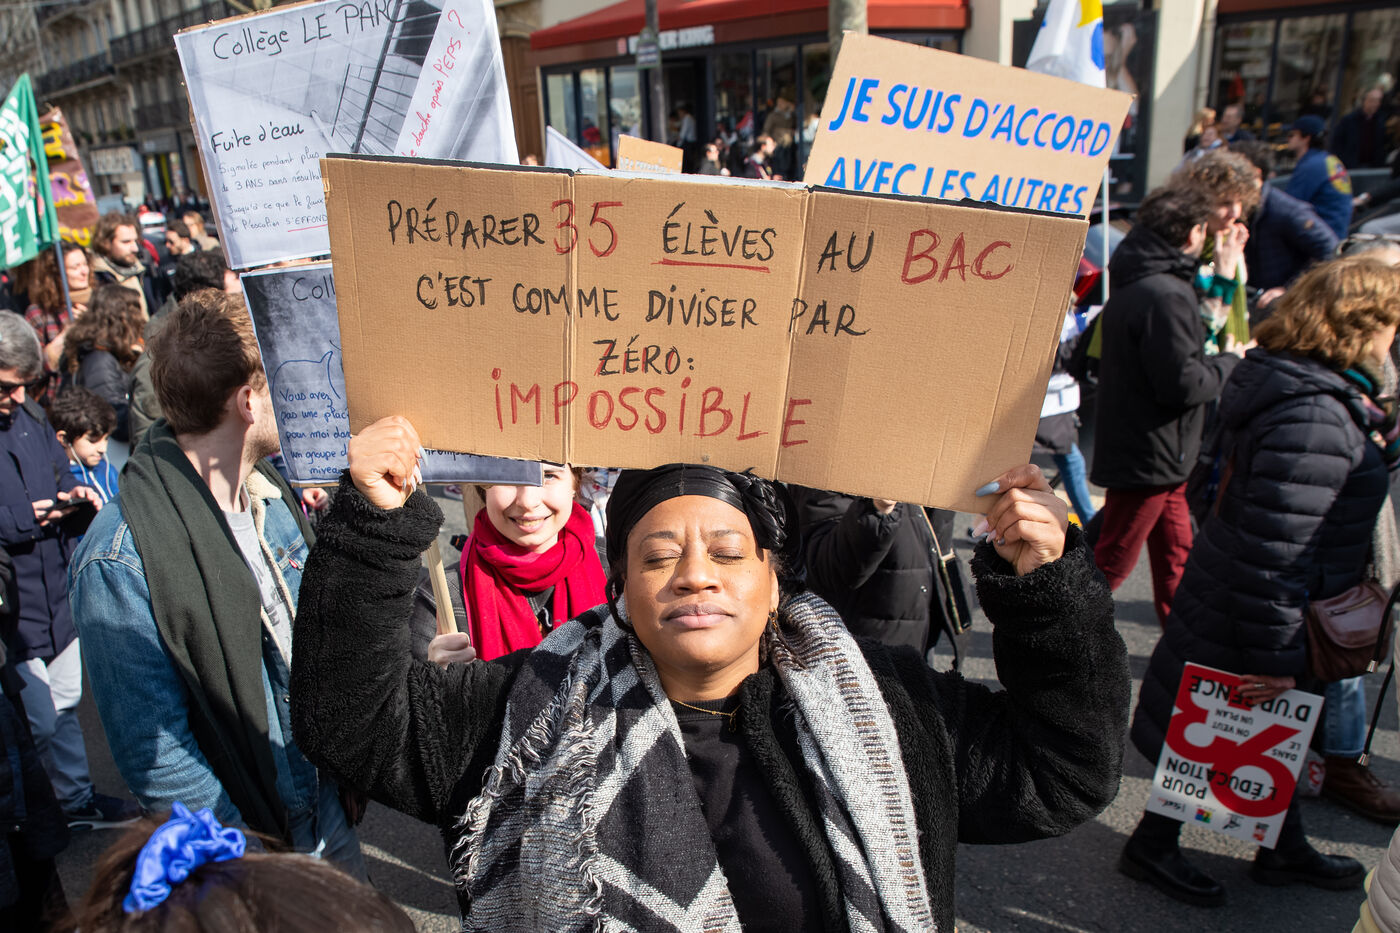 Collège LE PARC
Fuite d'eau
Signalée pendant plus
de 3 ANS sans résultat
Jusqu'à ce que le faux
plafond S'EFFONDRE
douche après l'EPS ?
JE SUIS D'ACCORD
AVEC LES AUTRES
PRÉPARER 35 ÉLÈVES AU BAC
C'EST COMME DIVISER PAR
ZÉRO:
IMPOSSIBLE
Coll
Vous avez
pas une place
pour moi dans
un groupe de
niveau
UN PLAN
D'URGENCE
ON VEUT
DANS LE
93
POUR
L'ÉDUCATION